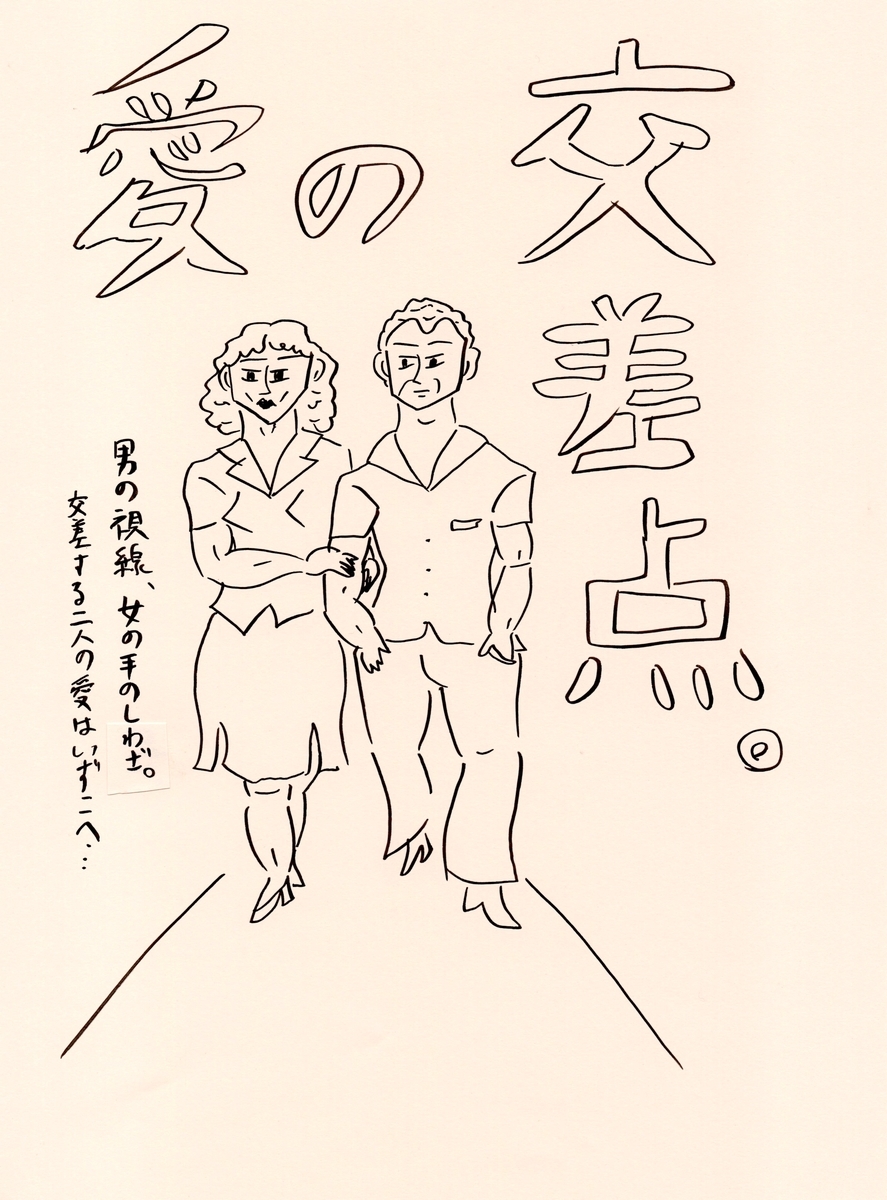 愛の
交差点。
男の視線、女の手のしわざ。
交差する二人の愛はいずこへ…